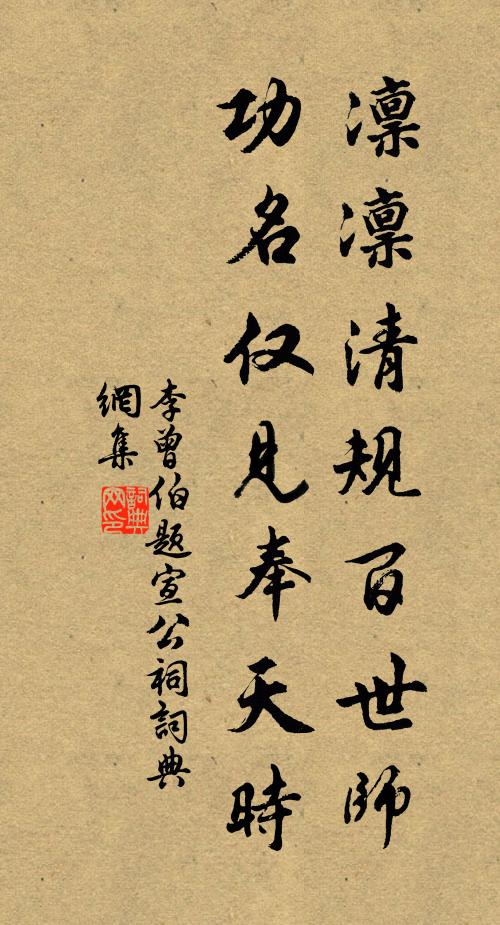 凛凛清規百世師
功名仅見奉天時
李曾伯題宣公祠詞典
網集
詞典
网印